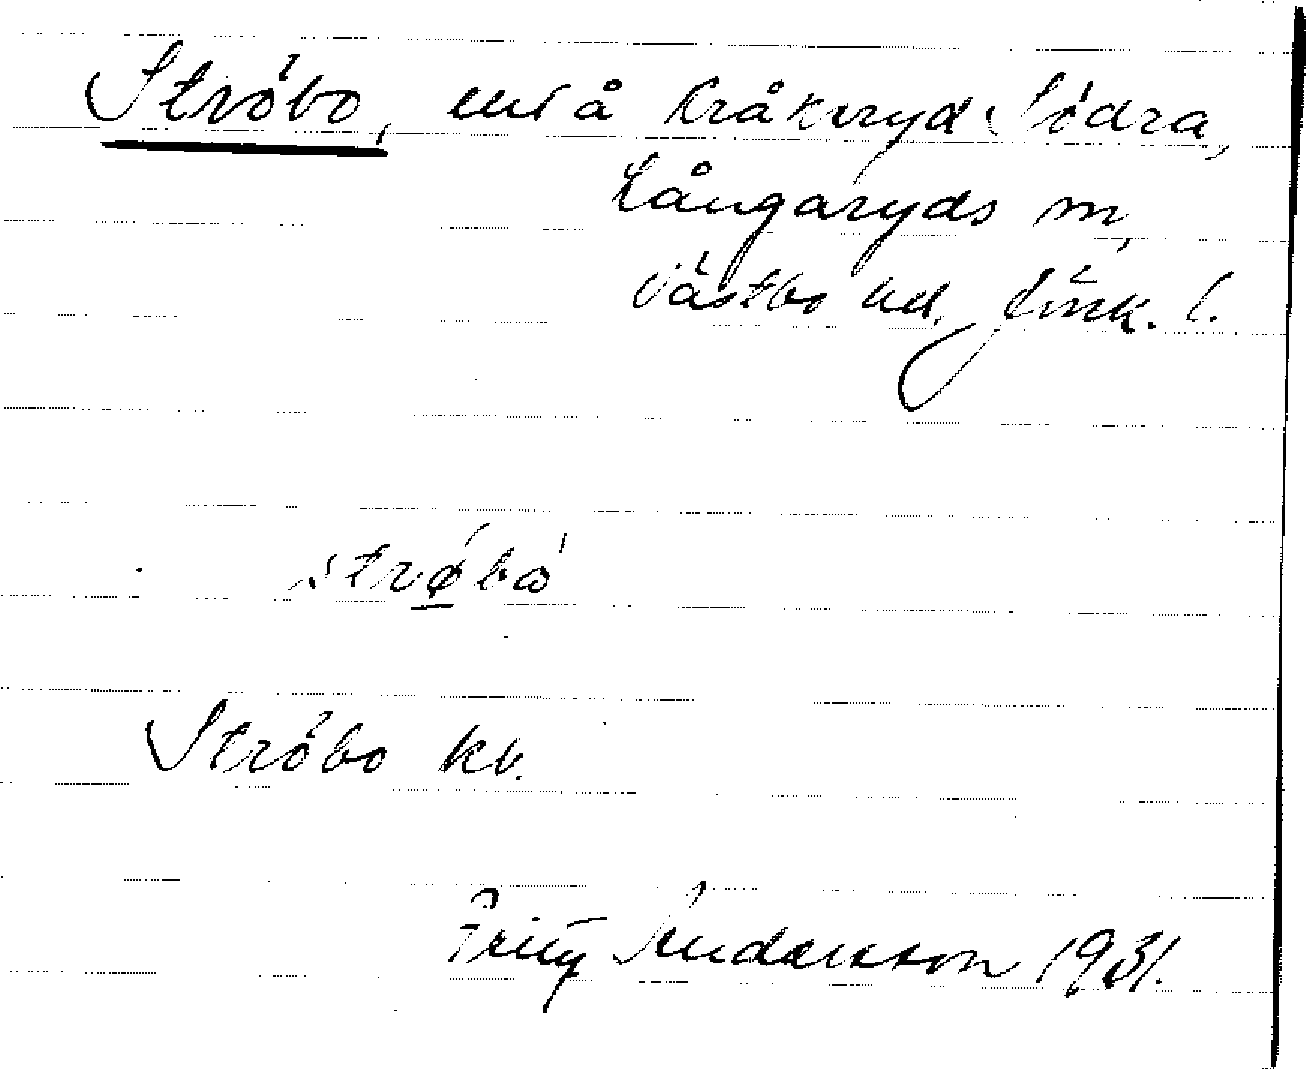 Ströbo, und å Kråkeryd Södra,
Långaryds sn,
Västbo hd. Jönk. l.
strǿ̱bó
Ströbo kv.
Fritz Andersson 1931.